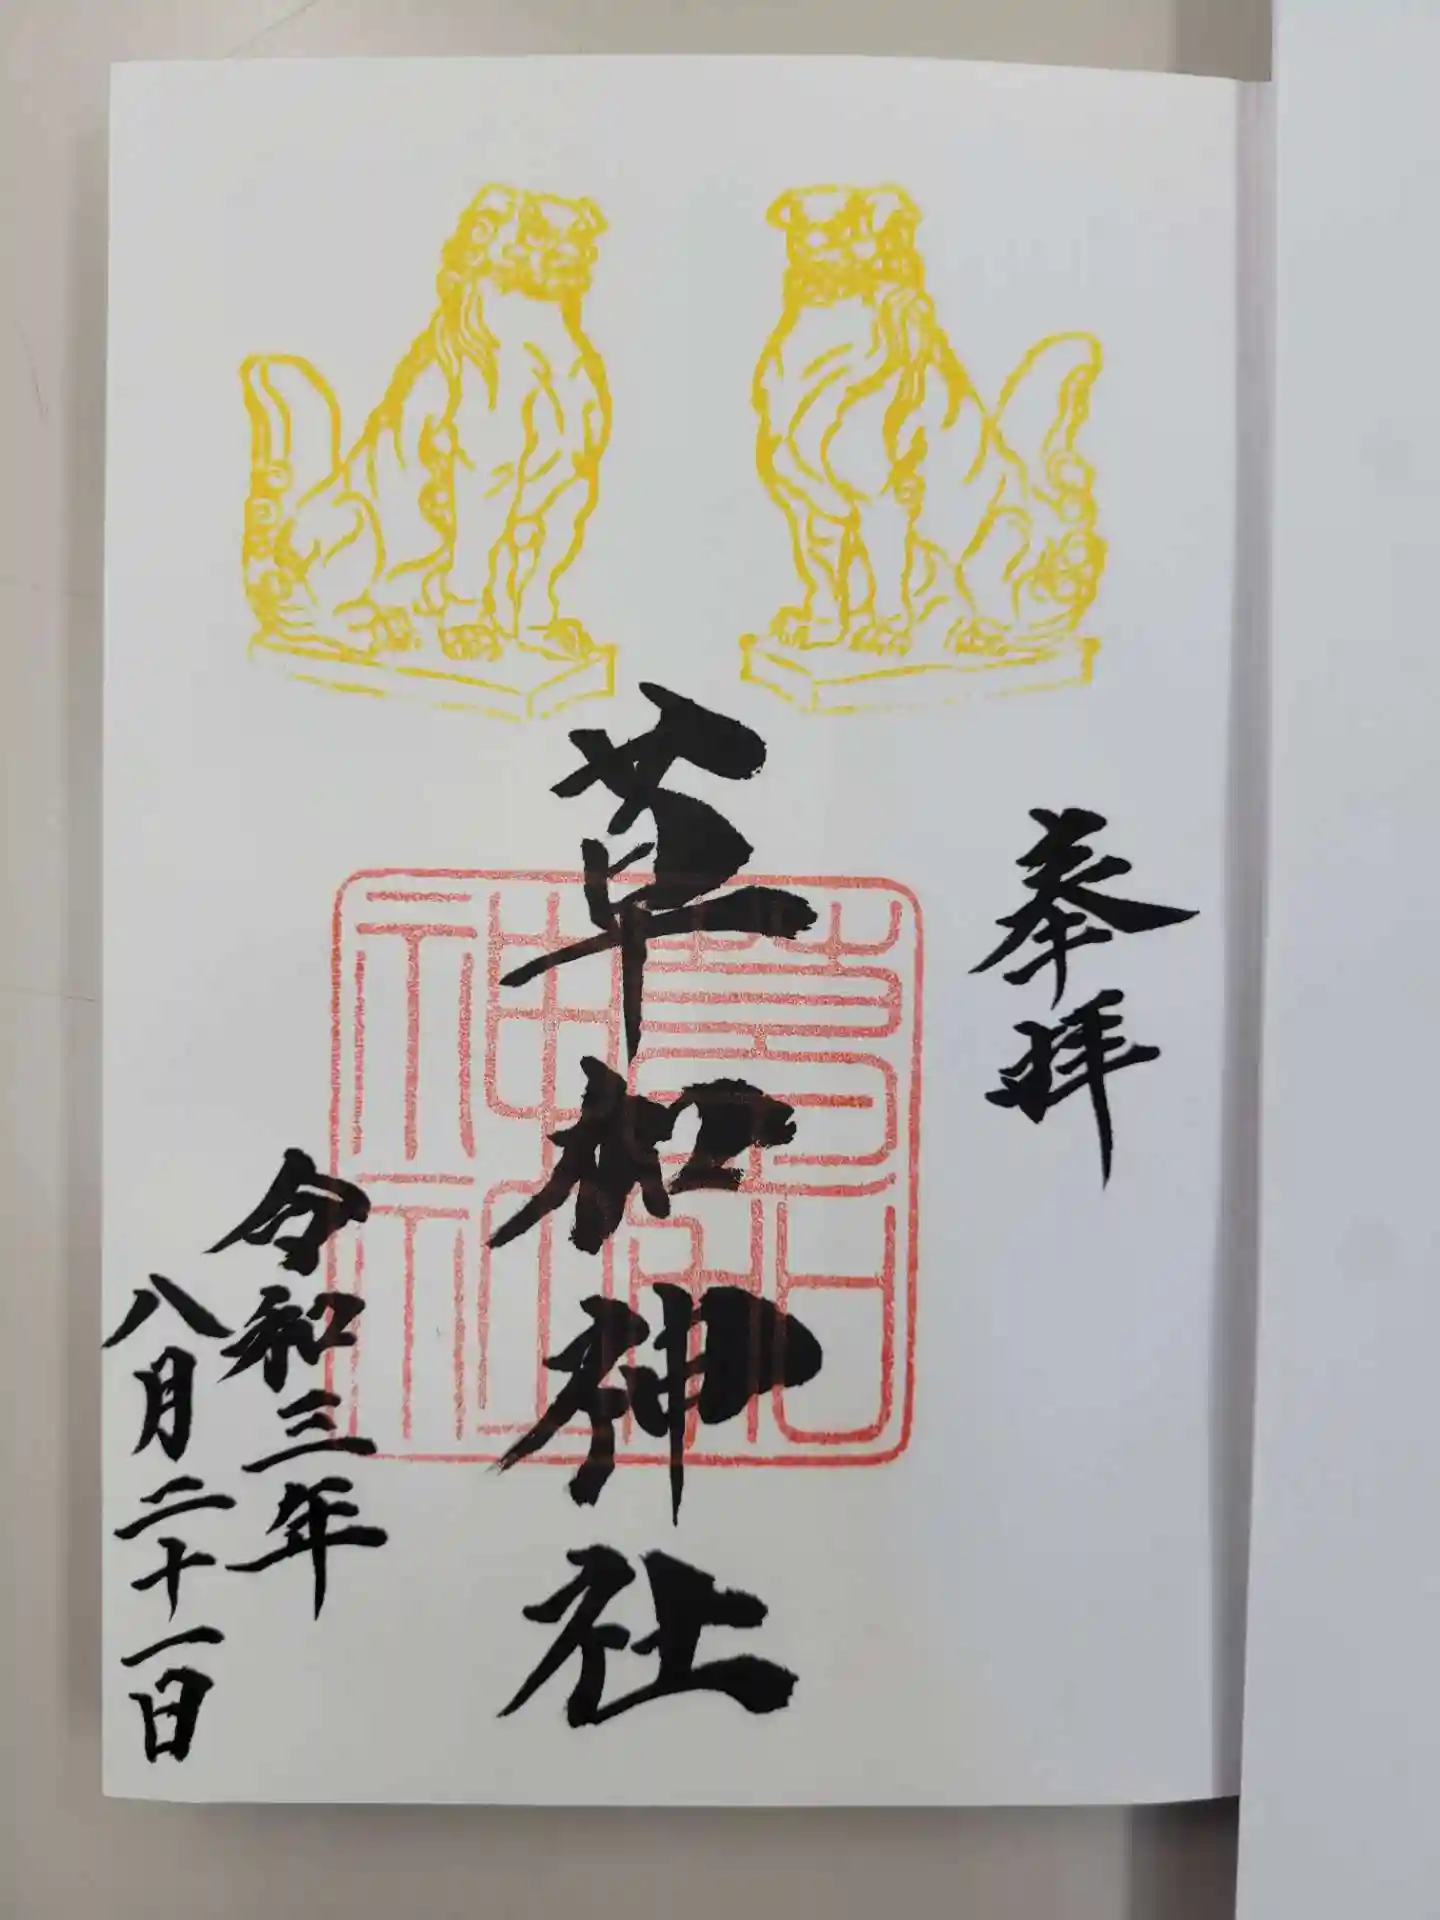 奉拝
草加神社
草加
神社
令和三年
八月二十一日